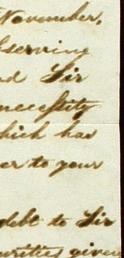 November,
bserving
nd Sir
necessity
which has
er to your
debt to Sir
urities given